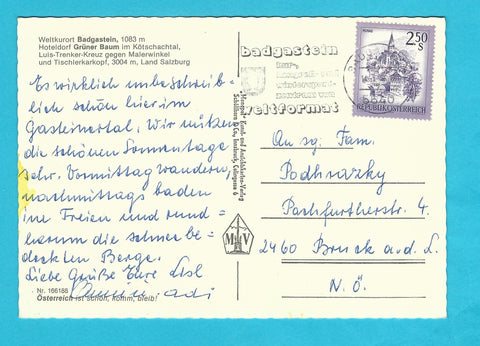 Weltkurort Badgastein, 1083 m
Hoteldorf Grüner Baum im Kötschachtal,
Luis-Trenker-Kreuz gegen Malerwinkel
und Tischlerkarkopf, 3004 m, Land Salzburg
Es wirklich unbeschreib-
lich schön hier im
Gasteinertal. Wir nützen
die schönen Sonnentage
sehr. Vormittag wandern,
nachmittags baden
im Freien und rund=
herum die schneebe=
deckten Berge.
Liebe Grüße Eure
Nr. 166188
Österreich ist schön, komm, bleib!
"Monopol" Kunst- und Ansichtskarten-Verlag
Schöllhorn & Co., Innsbruck,
M V
badgastein
kur-
weltformat
5640
2.50
S
REPUBLIK ÖSTERREICH
An sg. Fam.
Podhrazky
Pachfurtherstr. 4
2460 Bruck a.d.L.
N.Ö.